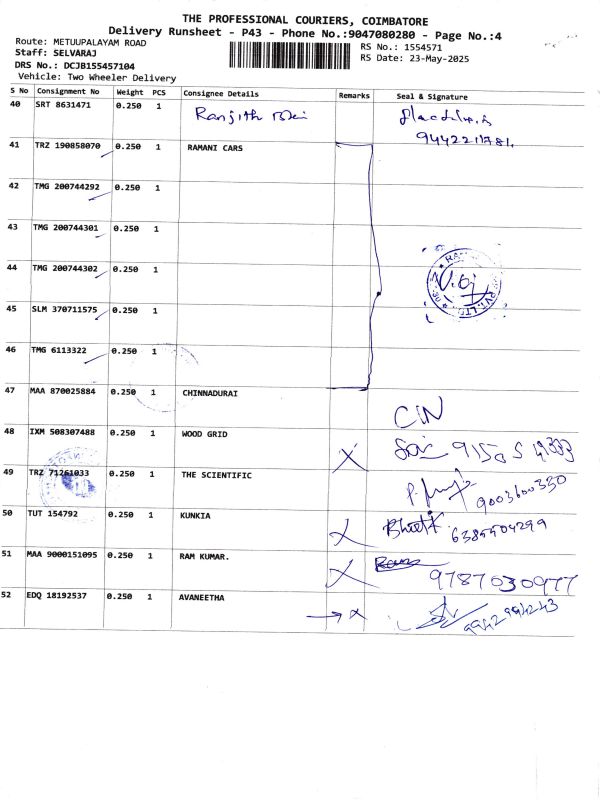 THE PROFESSIONAL COURIERS, COIMBATORE
Delivery Runsheet - P43 - Phone No.:9047080280 - Page No.:4
Route: METUUPALAYAM ROAD
Staff: SELVARAJ
DRS No.: DCJB155457104
Vehicle: Two Wheeler Delivery
RS No.: 1554571
RS Date: 23-May-2025
S No Consignment No Weight PCS Consignee Details Remarks Seal & Signature
40 SRT 8631471 0.250 1 Ranjith
9442211781
41 TRZ 190858070 0.250 1 RAMANI CARS
42 TMG 200744292 0.250 1
43 TMG 200744301 0.250 1
44 TMG 200744302 0.250 1
45 SLM 370711575 0.250 1
46 TMG 6113322 0.250 1
47 MAA 870025884 0.250 1 CHINNADURAI
48 IXM 508307488 0.250 1 WOOD GRID X
49 TRZ 71261033 0.250 1 THE SCIENTIFIC
9003600330
50 TUT 154792 0.250 1 KUNKIA X
6385504299
51 MAA 9000151095 0.250 1 RAM KUMAR. X
9787030977
52 EDQ 18192537 0.250 1 AVANEETHA → x
9942994243